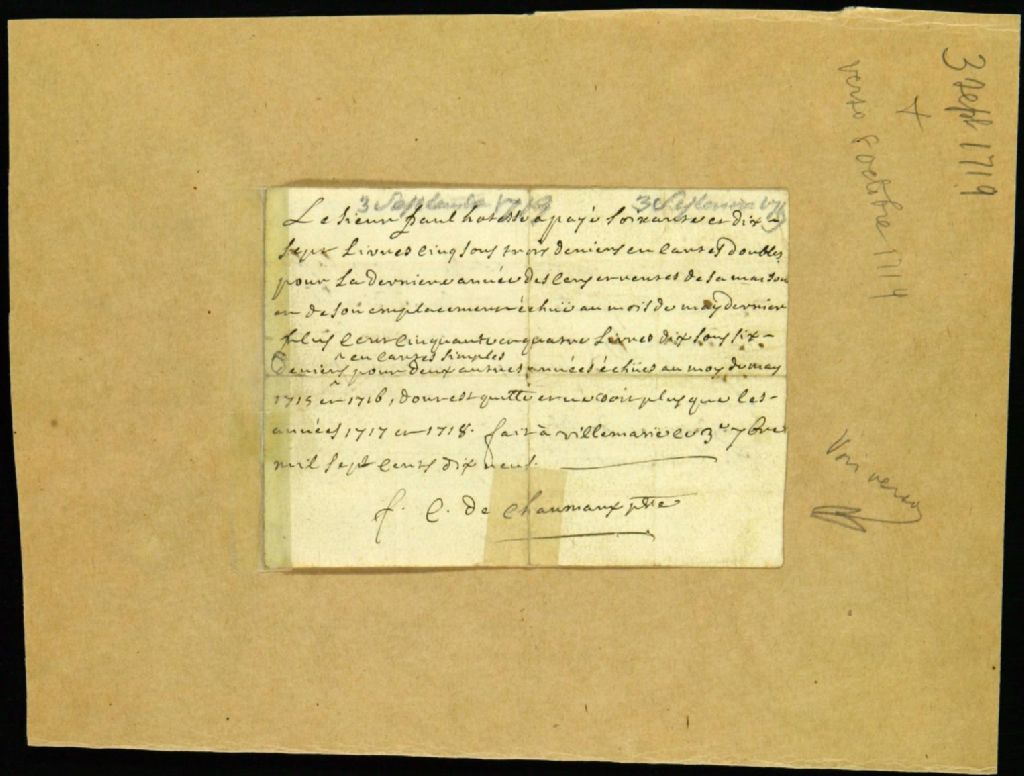 3 Septembre 1719 3 Septembre 1719
Le Sieur Paul hotesse a payé Soixante et dix-
Sept Livres Cinq Sous trois deniers en Cartes Doubles
pour La derniere année des Cens et rentes de sa maison
et de son emplacement échüe au mois de may dernier
plus Cent Cinquante et quatre Livres dix Sous six-
en Cartes simples
deniers pour deux autres années échües au moy de may
1715 et 1716, dont est quitte et ne doit plus que les-
années 1717 et 1718. fait à villemarie le 3e 7bre
mil Sept Cents dix neuf.
f. C. de Chaumaux ptre
3 Sept 1719
+
verso 8 octobre 1714
Voir verso